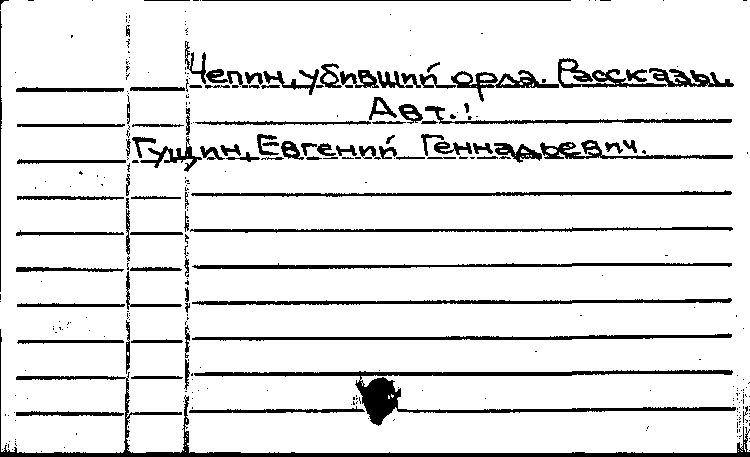 Чепин, убивший орла. Рассказы.
Авт.:
Гущин, Евгений Геннадьевич.